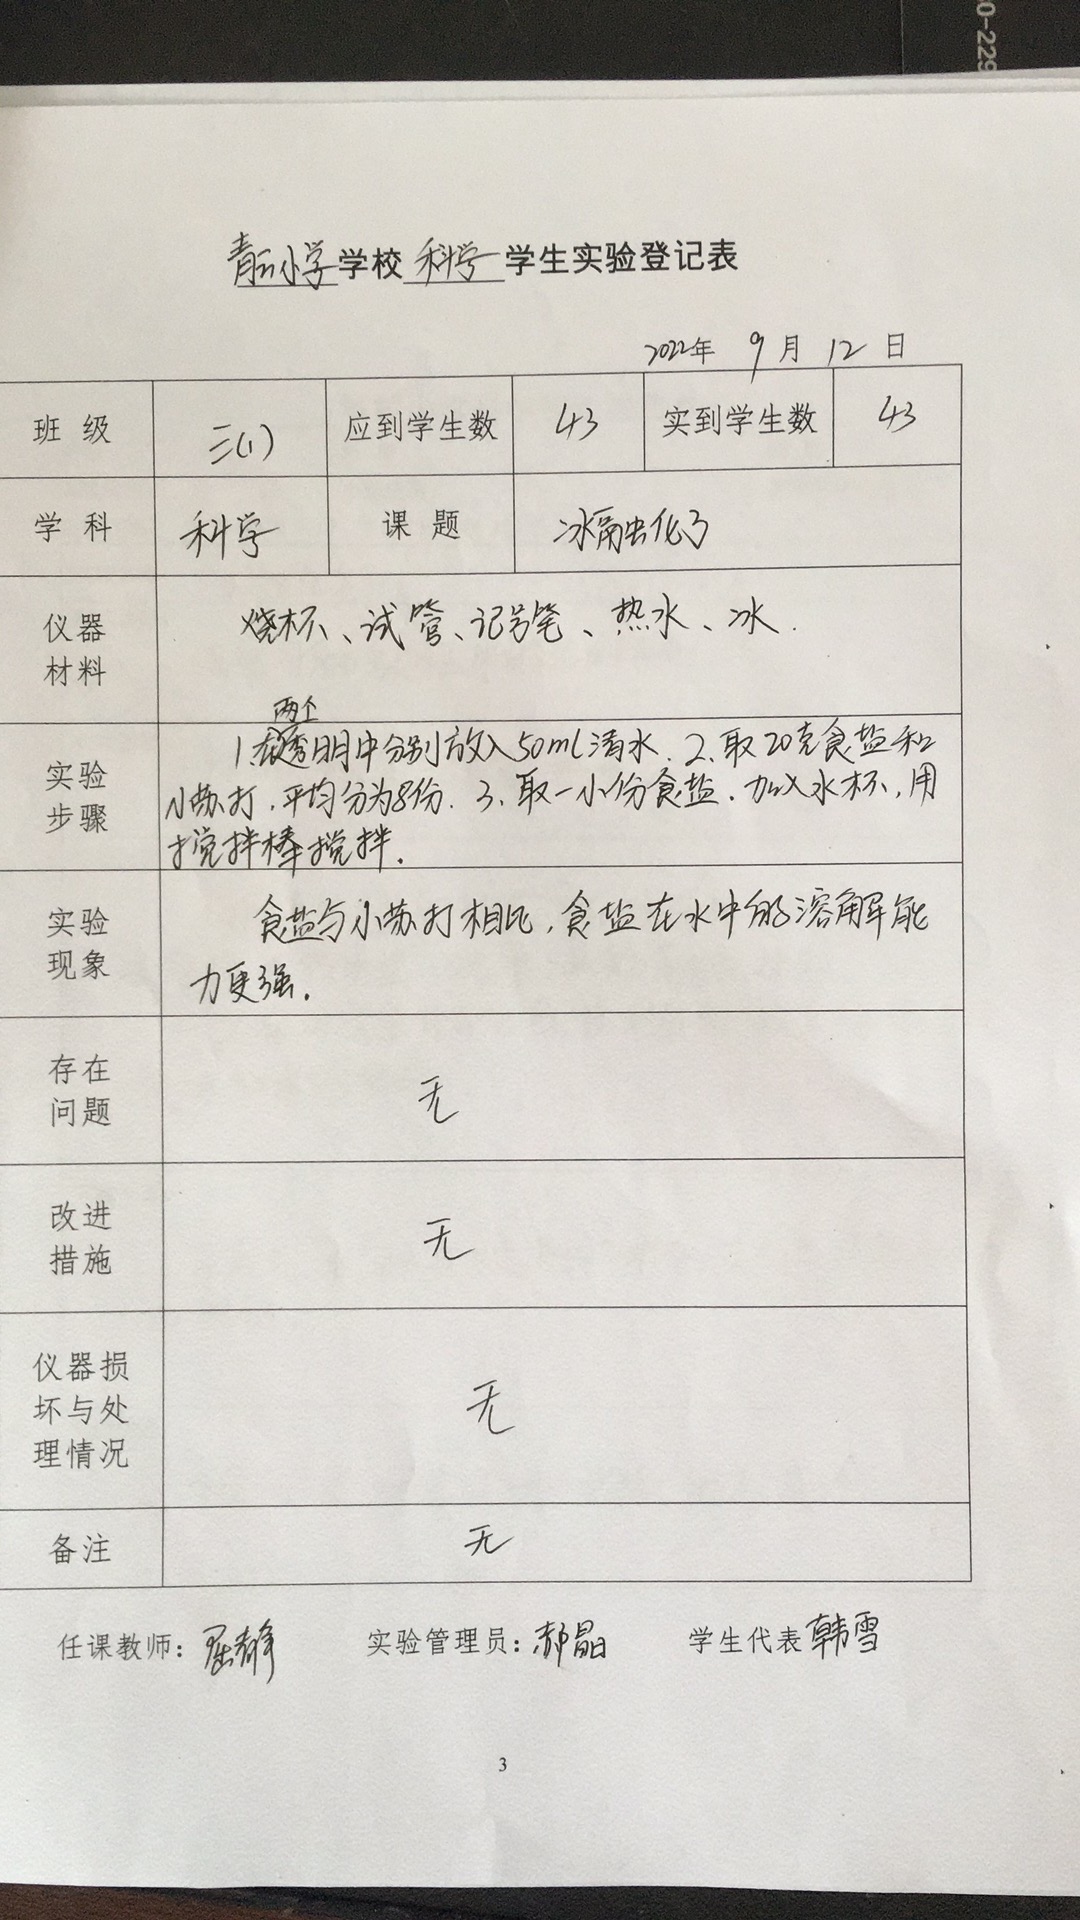 0-229
青云小学学校 科学 学生实验登记表
2022年 9月12日
班级 三(1) 应到学生数 43 实到学生数 43
学科 科学 课题 冰融化了
仪器材料 烧杯、试管、记号笔、热水、冰.
两个
实验步骤 1.在透明中分别放入50ml清水. 2.取20克食盐和
小苏打,平均分为8份. 3.取一小份食盐.加入水杯,用
搅拌棒搅拌.
实验现象 食盐与小苏打相比,食盐在水中的溶解能
力更强.
存在问题 无
改进措施 无
仪器损坏与处理情况 无
备注 无
任课教师:屈静 实验管理员:郝晶 学生代表 韩雪
3